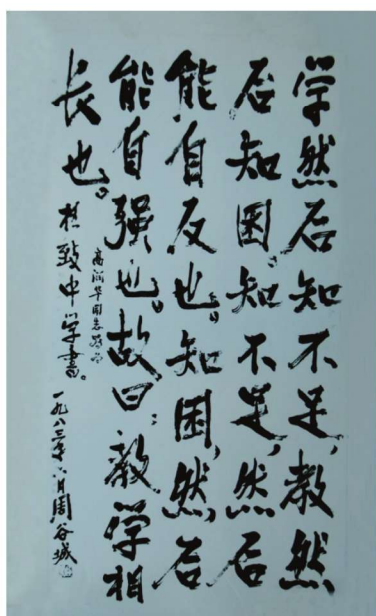 学然后知不足,教然
后知困,知不足,然后
能自反也。知困,然后
能自强也。故曰:教学相
长也。
高润华同志
格致中学書。
一九八三年六月周谷城